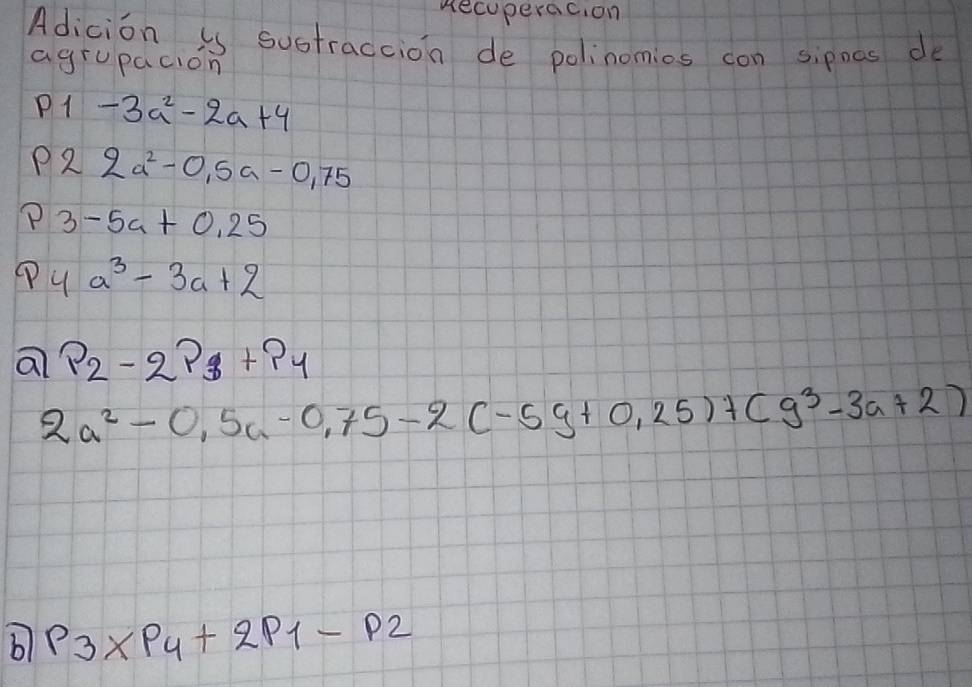 Recuperacion
Adición y sustracción de polinomios con signos de
agrupación
P1 -3a² - 2a + 4
P2 2a² - 0,5a - 0,75
P3 -5a + 0,25
P4 a³ - 3a + 2
a) P2 - 2P3 + P4
2a² - 0,5a - 0,75 - 2(-5a + 0,25) + (a³ - 3a + 2)
b) P3 x P4 + 2P1 - P2